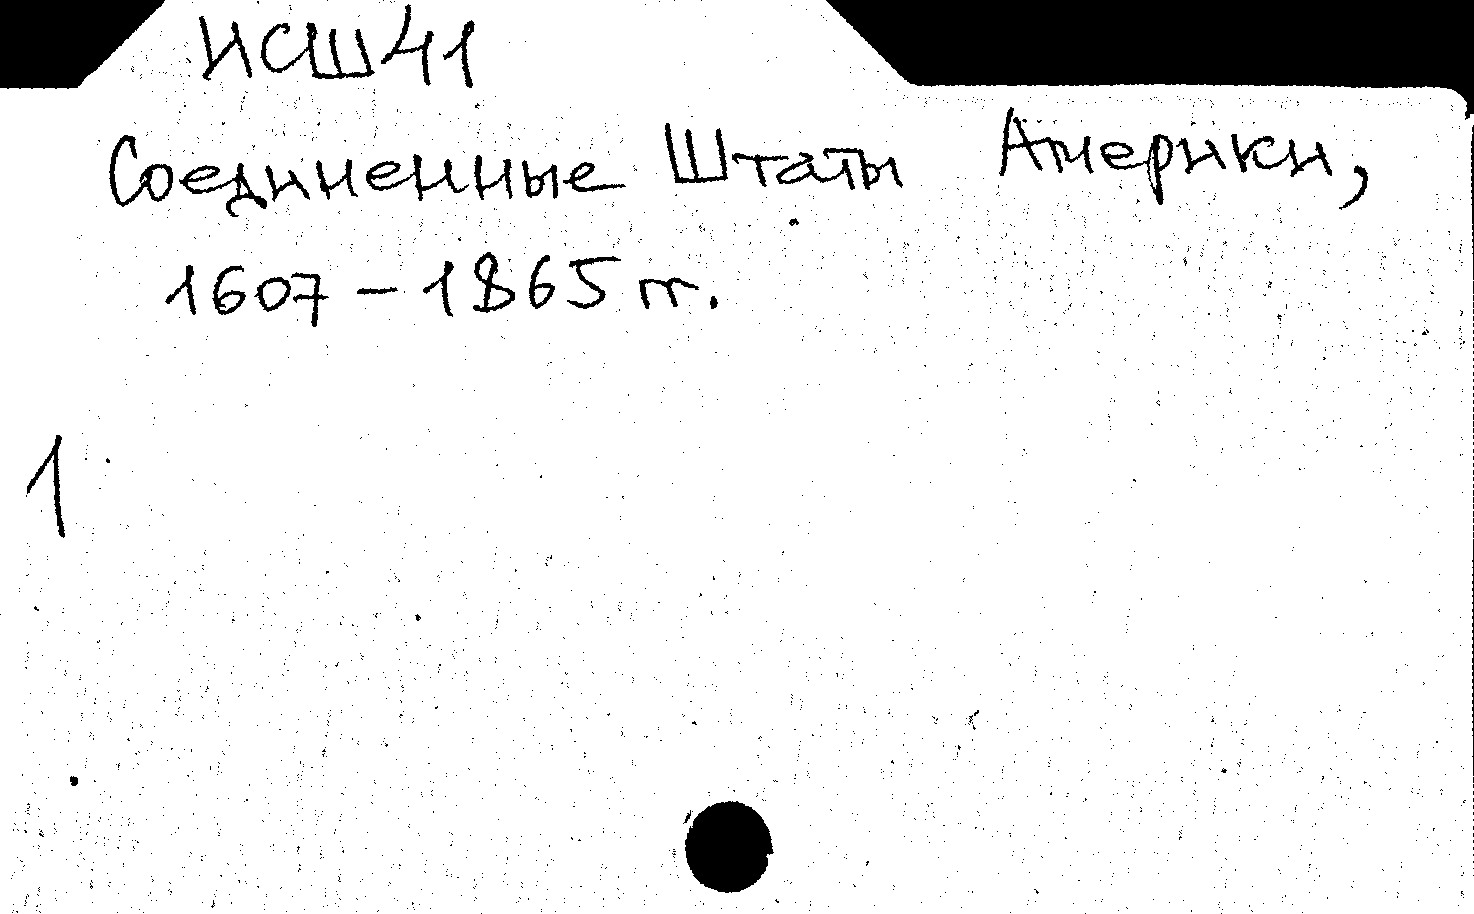 ИСШ41
Соединенные Штаты Америки,
1607 – 1865 гг.
1